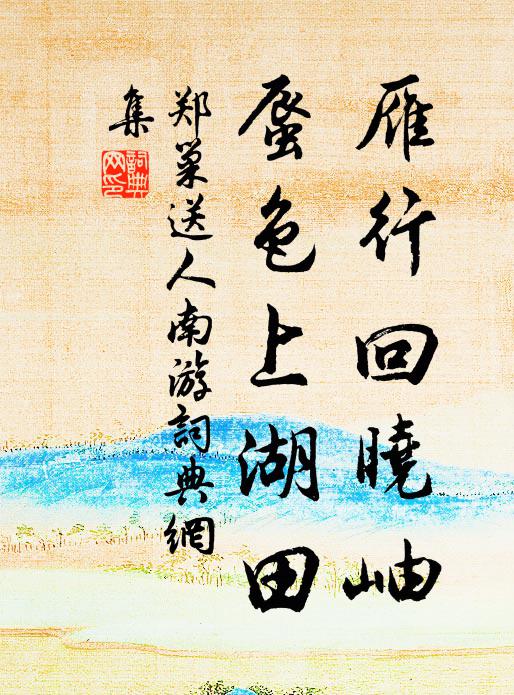 雁行回曉岫
蜃色上湖田
郑巢送人南游詞典網
集
詞典网印